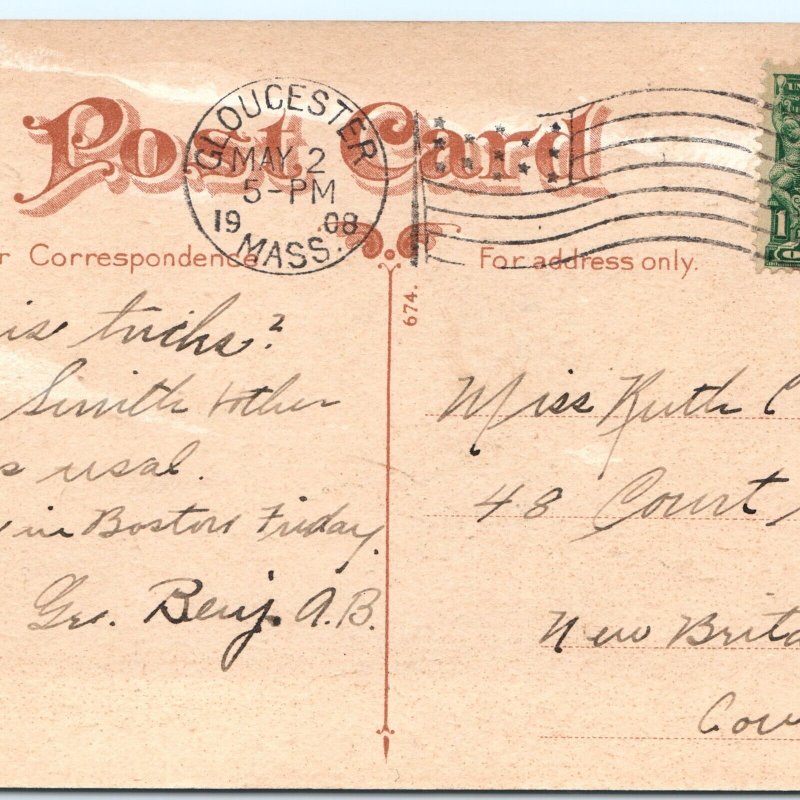 Post Card
GLOUCESTER
MAY 2
5-PM
19 08
MASS.
r Correspondence
For address only.
674.
is tricks?
Smith + other
s usal.
in Boston Friday.
Geo. Benj. A.B.
Miss Ruth C
48 Court
New Brita
Con
1